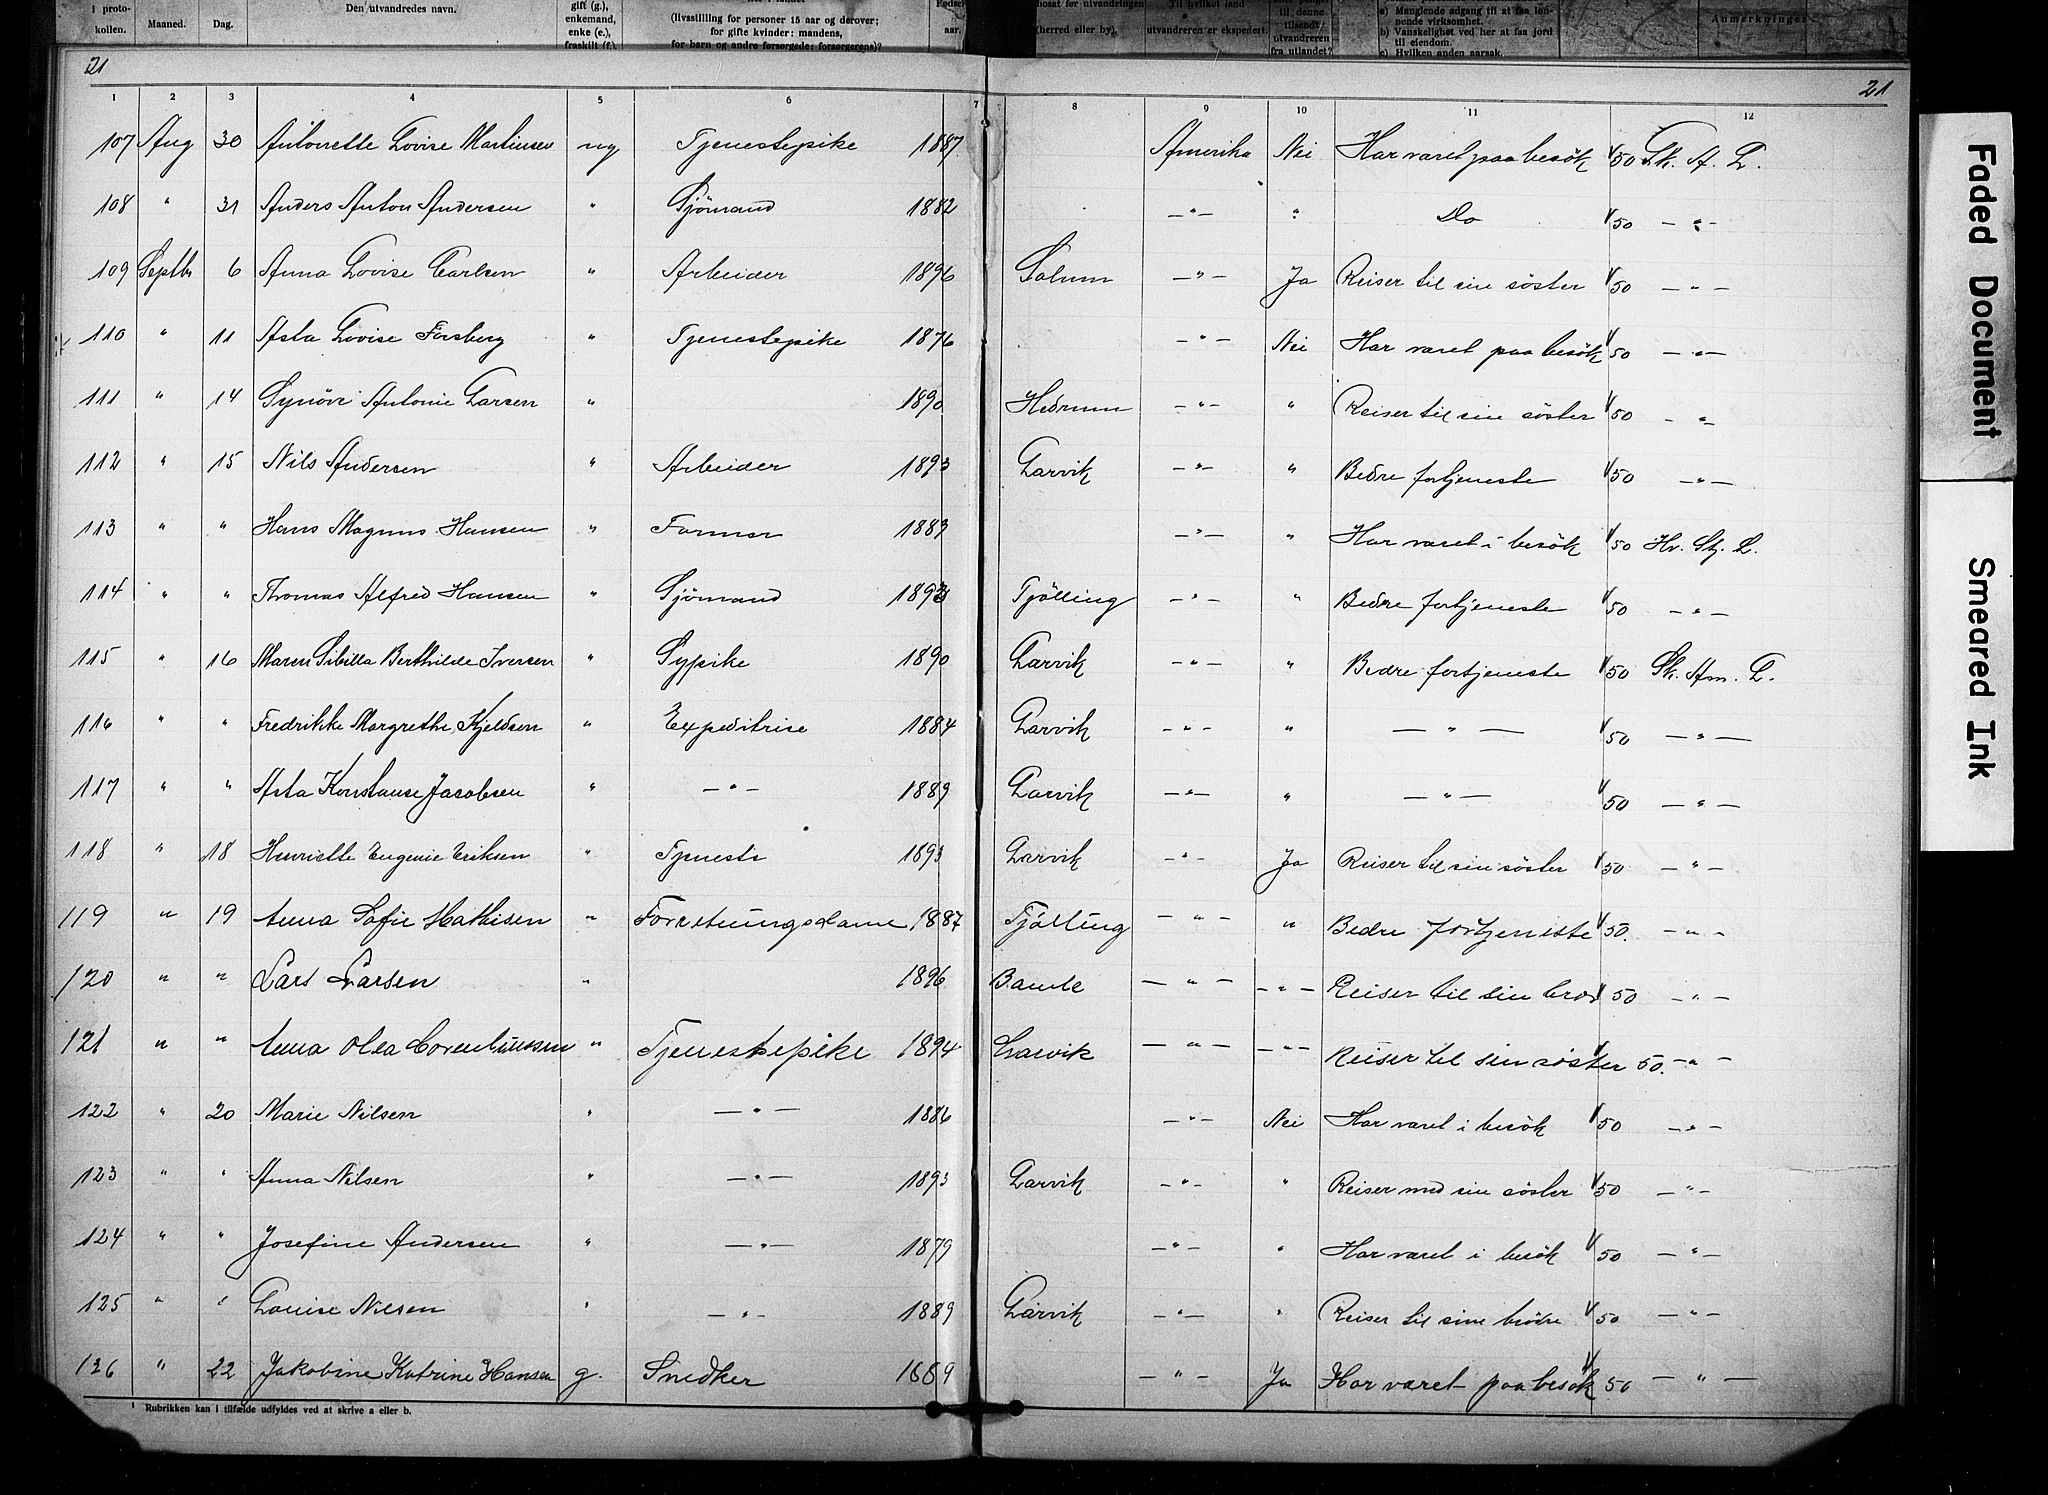 i proto-
kollen.
Maaned.
Dag.
Den utvandredes navn.
gift (g.),
enkemand,
enke (e.),
fraskilt (f.)
(livsstilling for personer 15 aar og derover;
for gifte kvinder: mandens,
for barn og andre forsørgede: forsørgerens)?
aar.
bosat før utvandringen
(herred eller by).
Til hvilket land
utvandreren er ekspedert.
til denne
tilsendt
utvandreren
fra utlandet?
a) Manglende adgang til at faa løn-
nende virksomhet.
b) Vanskelighet ved her at faa jord
til eiendom.
c) Hvilken anden aarsak.
Anmerkninger.
21 21
1 2 3 4 5 6 7 8 9 10 11 12
107 Aug 30 Antonette Lovise Martinsen ug Tjenestepike 1887 Amerika Nei Har varet paa besök 50 Sk. A. L.
108 " 31 Anders Anton Andersen " Sjömand 1882 —"— " Do 50 —"—
109 Septbr 6 Anna Lovise Carlsen " Arbeider 1896 Solum —"— Ja Reiser til sin söster 50 —"—
110 " 11 Asta Lovise Forsberg " Tjenestepike 1876 —"— Nei Har varet paa besök 50 —"—
111 " 14 Synövi Antonie Larsen " 1890 Hedrum —"— " Reiser til sin söster 50 —"—
112 " 15 Nils Andersen " Arbeider 1893 Larvik —"— " Bedre fortjeneste 50 —"—
113 " " Hans Magnus Hansen " Farmer 1883 —"— " Har varet i besök 50 Hv. Stj. L.
114 " " Thomas Alfred Hansen " Sjömand 1893 Tjölling —"— " Bedre fortjeneste 50 —"—
115 " 16 Maren Sibilla Berthilde Iversen " Sypike 1890 Larvik —"— " Bedre fortjeneste 50 Sk. Am. L.
116 " " Fredrikke Margrethe Kjeldsen " Expeditrise 1884 Larvik —"— " —"— 50 —"—
117 " " Asta Konstanse Jacobsen " —"— 1889 Larvik —"— " —"— 50 —"—
118 " 18 Henriette Eugenie Eriksen " Tjeneste 1893 Larvik —"— Ja Reiser til sin söster 50 —"—
119 " 19 Anna Sofie Mathisen " Forretningsdame 1887 Tjölling —"— " Bedre fortjeniste 50. —"—
120 " " Lars Larsen " 1896 Bamle —"— —"— Reiser til sin bror 50 —"—
121 " " Anna Olea Corentiussen " Tjenestepike 1894 Larvik —"— —"— Reiser til sin söster 50. —"—
122 " 20 Marie Nilsen " —"— 1886 —"— Nei Har varet i besök 50 —"—
123 " " Anna Nilsen " —"— 1893 Larvik —"— " Reiser med sin söster 50 —"—
124 " " Josefine Andersen " —"— 1879 —"— " Har varet i besök 50 —"—
125 " " Louise Nilsen " —"— 1889 Larvik —"— " Reiser til sine brödre 50 —"—
126 " 22 Jakobine Katrine Hansen g. Snedker 1889 —"— Ja Har været paa besøk 50 —"—
¹ Rubrikken kan i tilfælde udfyldes ved at skrive a eller b.
Faded Document
Smeared Ink